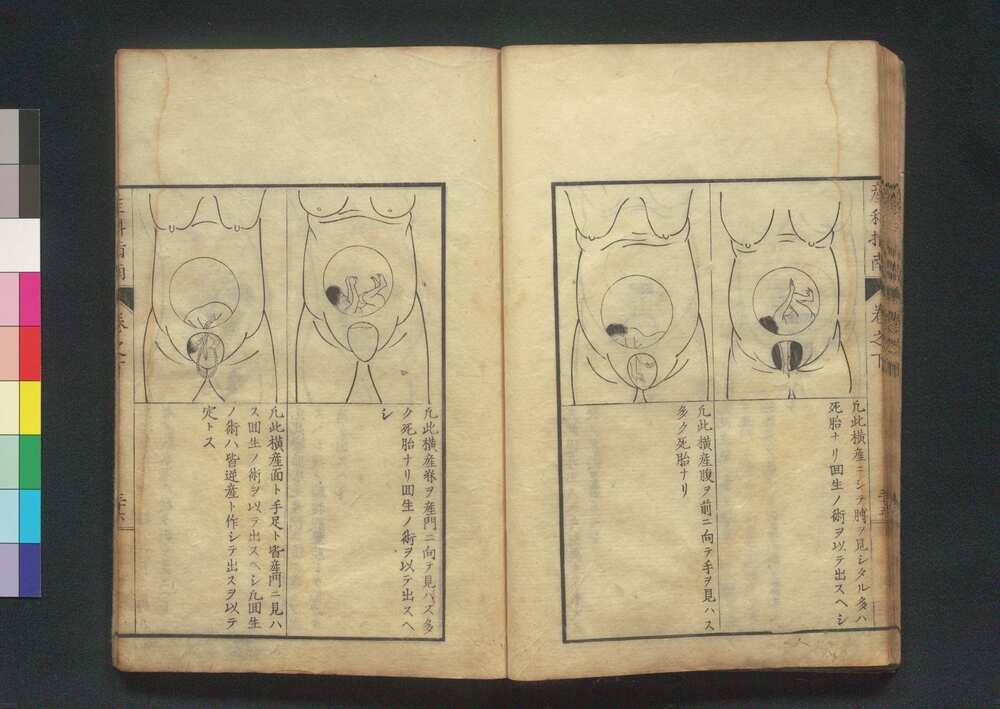 産科指南
卷之下
凢此横産ニシテ膊ヲ見シタル多ハ
死胎ナリ回生ノ術ヲ以テ出スヘシ
凢此横産腹ヲ前ニ向テ手ヲ見ハス
多ク死胎ナリ
凢此横産脊ヲ産門ニ向テ見ハズ多
ク死胎ナリ回生ノ術ヲ以テ出スヘ
シ
凢此横産面ト手足ト皆産門ニ見ハ
ス回生ノ術ヲ以テ出スヘシ凢回生
ノ術ハ皆逆産ト作シテ出スヲ以テ
定トス